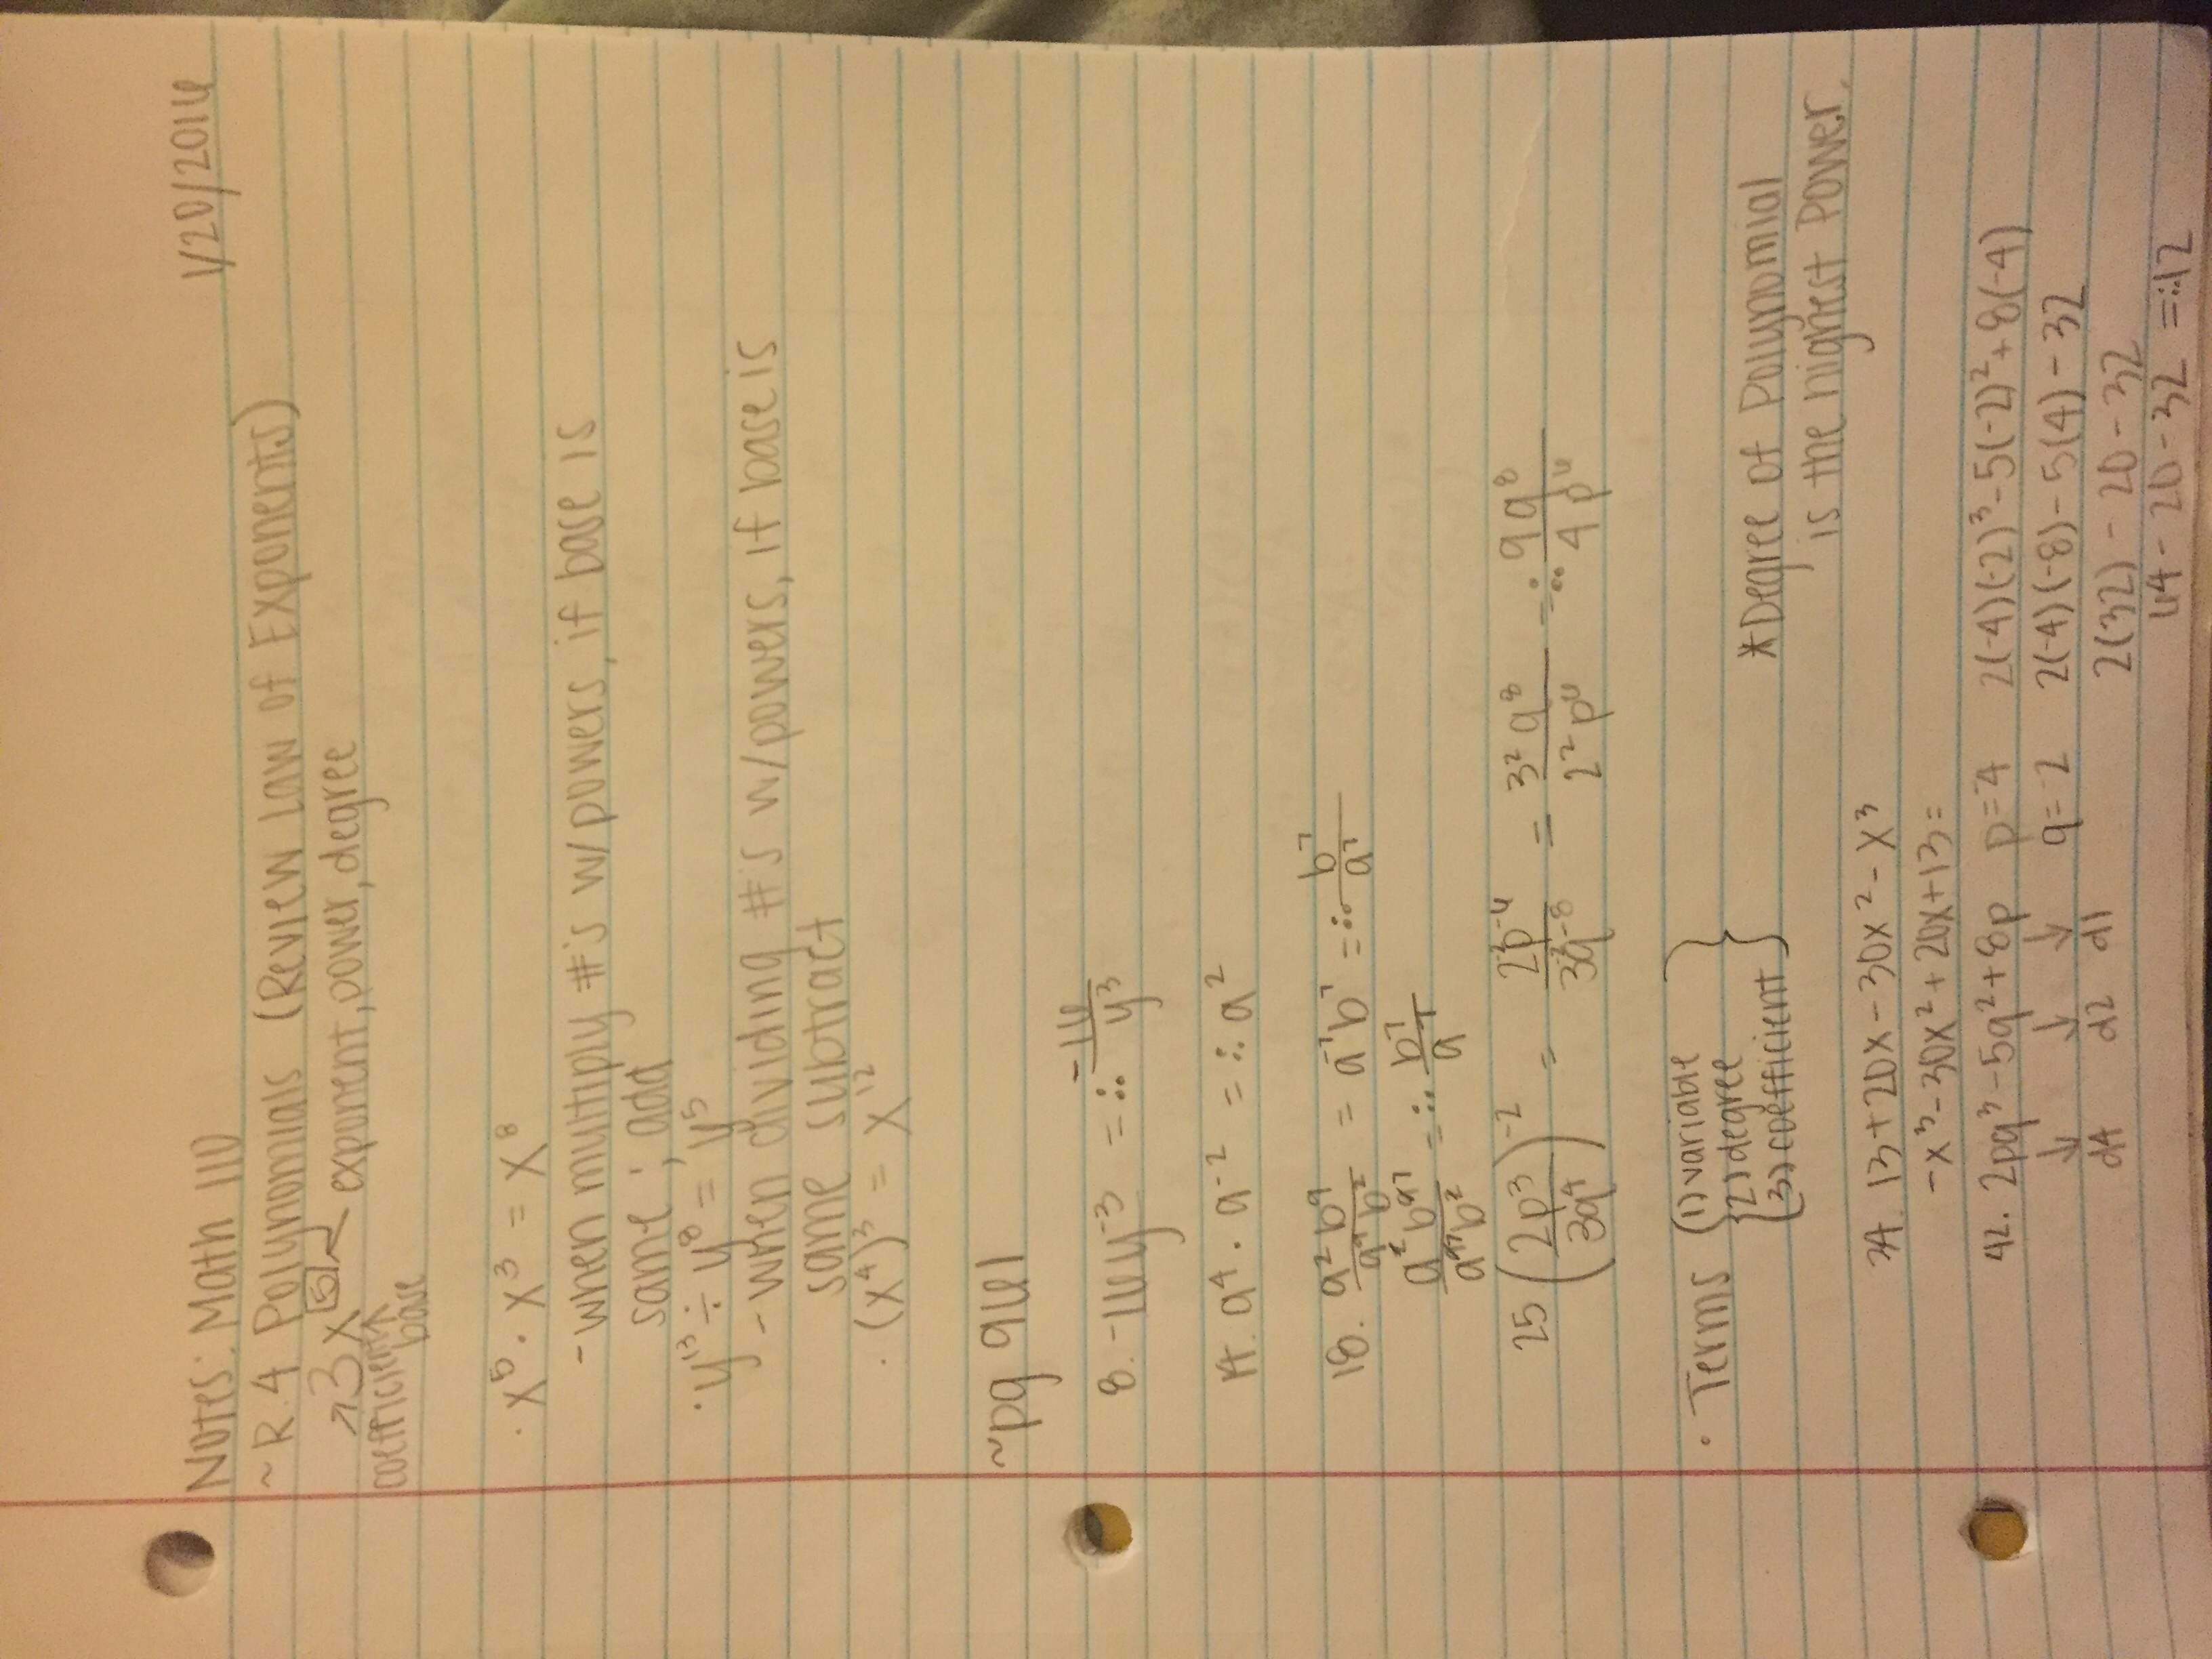 Notes: Math 110 1/20/2016
~R.4 Polynomials (Review Law of Exponents)
↗3x⁵ exponent, power, degree
coefficient ↑
base
· x⁵ · x³ = x⁸
- when multiply #'s w/powers, if base is
same ; add
· y¹³ ÷ y⁸ = y⁵
- when dividing #'s w/powers, if base is
same subtract
· (x⁴)³ = x¹²
~pg 961
8. -16y⁻³ = ∴ -16/y³
14. a⁴ · a⁻² = ∴ a²
18. a²b⁹/a⁹b² = a⁻⁷b⁷ = ∴ b⁷/a⁷
a²b⁹⁷/a⁹⁷b² = ∴ b⁷/a⁷
25 (2p³/3q⁴)⁻² = 2⁻²p⁻⁶/3⁻²q⁻⁸ = 3²q⁸/2²p⁶ = ∴ 9q⁸/4p⁶
· Terms {(1) variable
(2) degree
(3) coefficient}
*Degree of Polynomial
is the highest Power.
34. 13+20x-30x²-x³
-x³-30x²+20x+13=
42. 2pq³-5q²+8p p=⁻4 2(-4)(-2)³-5(-2)²+8(-4)
↓ ↓ ↓ q=-2 2(-4)(-8)-5(4)-32
d4 d2 d1 2(32)-20-32
64-20-32 =∴12